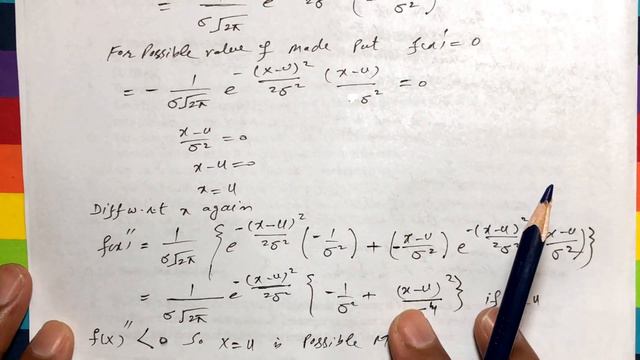 = 1/(σ√2π) e 2σ² (- σ²)
For Possible value of Mode Put f(x)' = 0
= - 1/(σ√2π) e^(-(x-u)²/2σ²) (x-u)/σ² = 0
(x-u)/σ² = 0
x-u = 0
x = u
Diff w.r.t x again
f(x)'' = 1/(σ√2π) { e^(-(x-u)²/2σ²) (-1/σ²) + (-(x-u)/σ²) e^(-(x-u)²/2σ²) (x-u)/σ² }
= 1/(σ√2π) e^(-(x-u)²/2σ²) { -1/σ² + (x-u)²/σ⁴ } if u
f(x)'' < 0 So x = u is Possible M